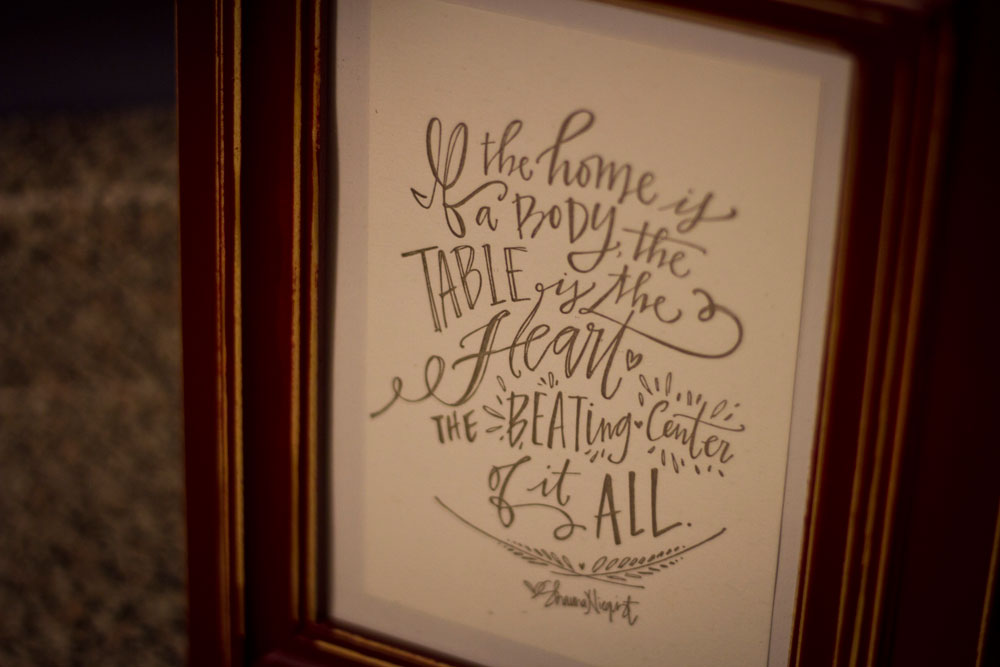 If the home is
a BODY, the
TABLE is the
Heart
THE BEATing Center
of it ALL.
Shauna Niequist